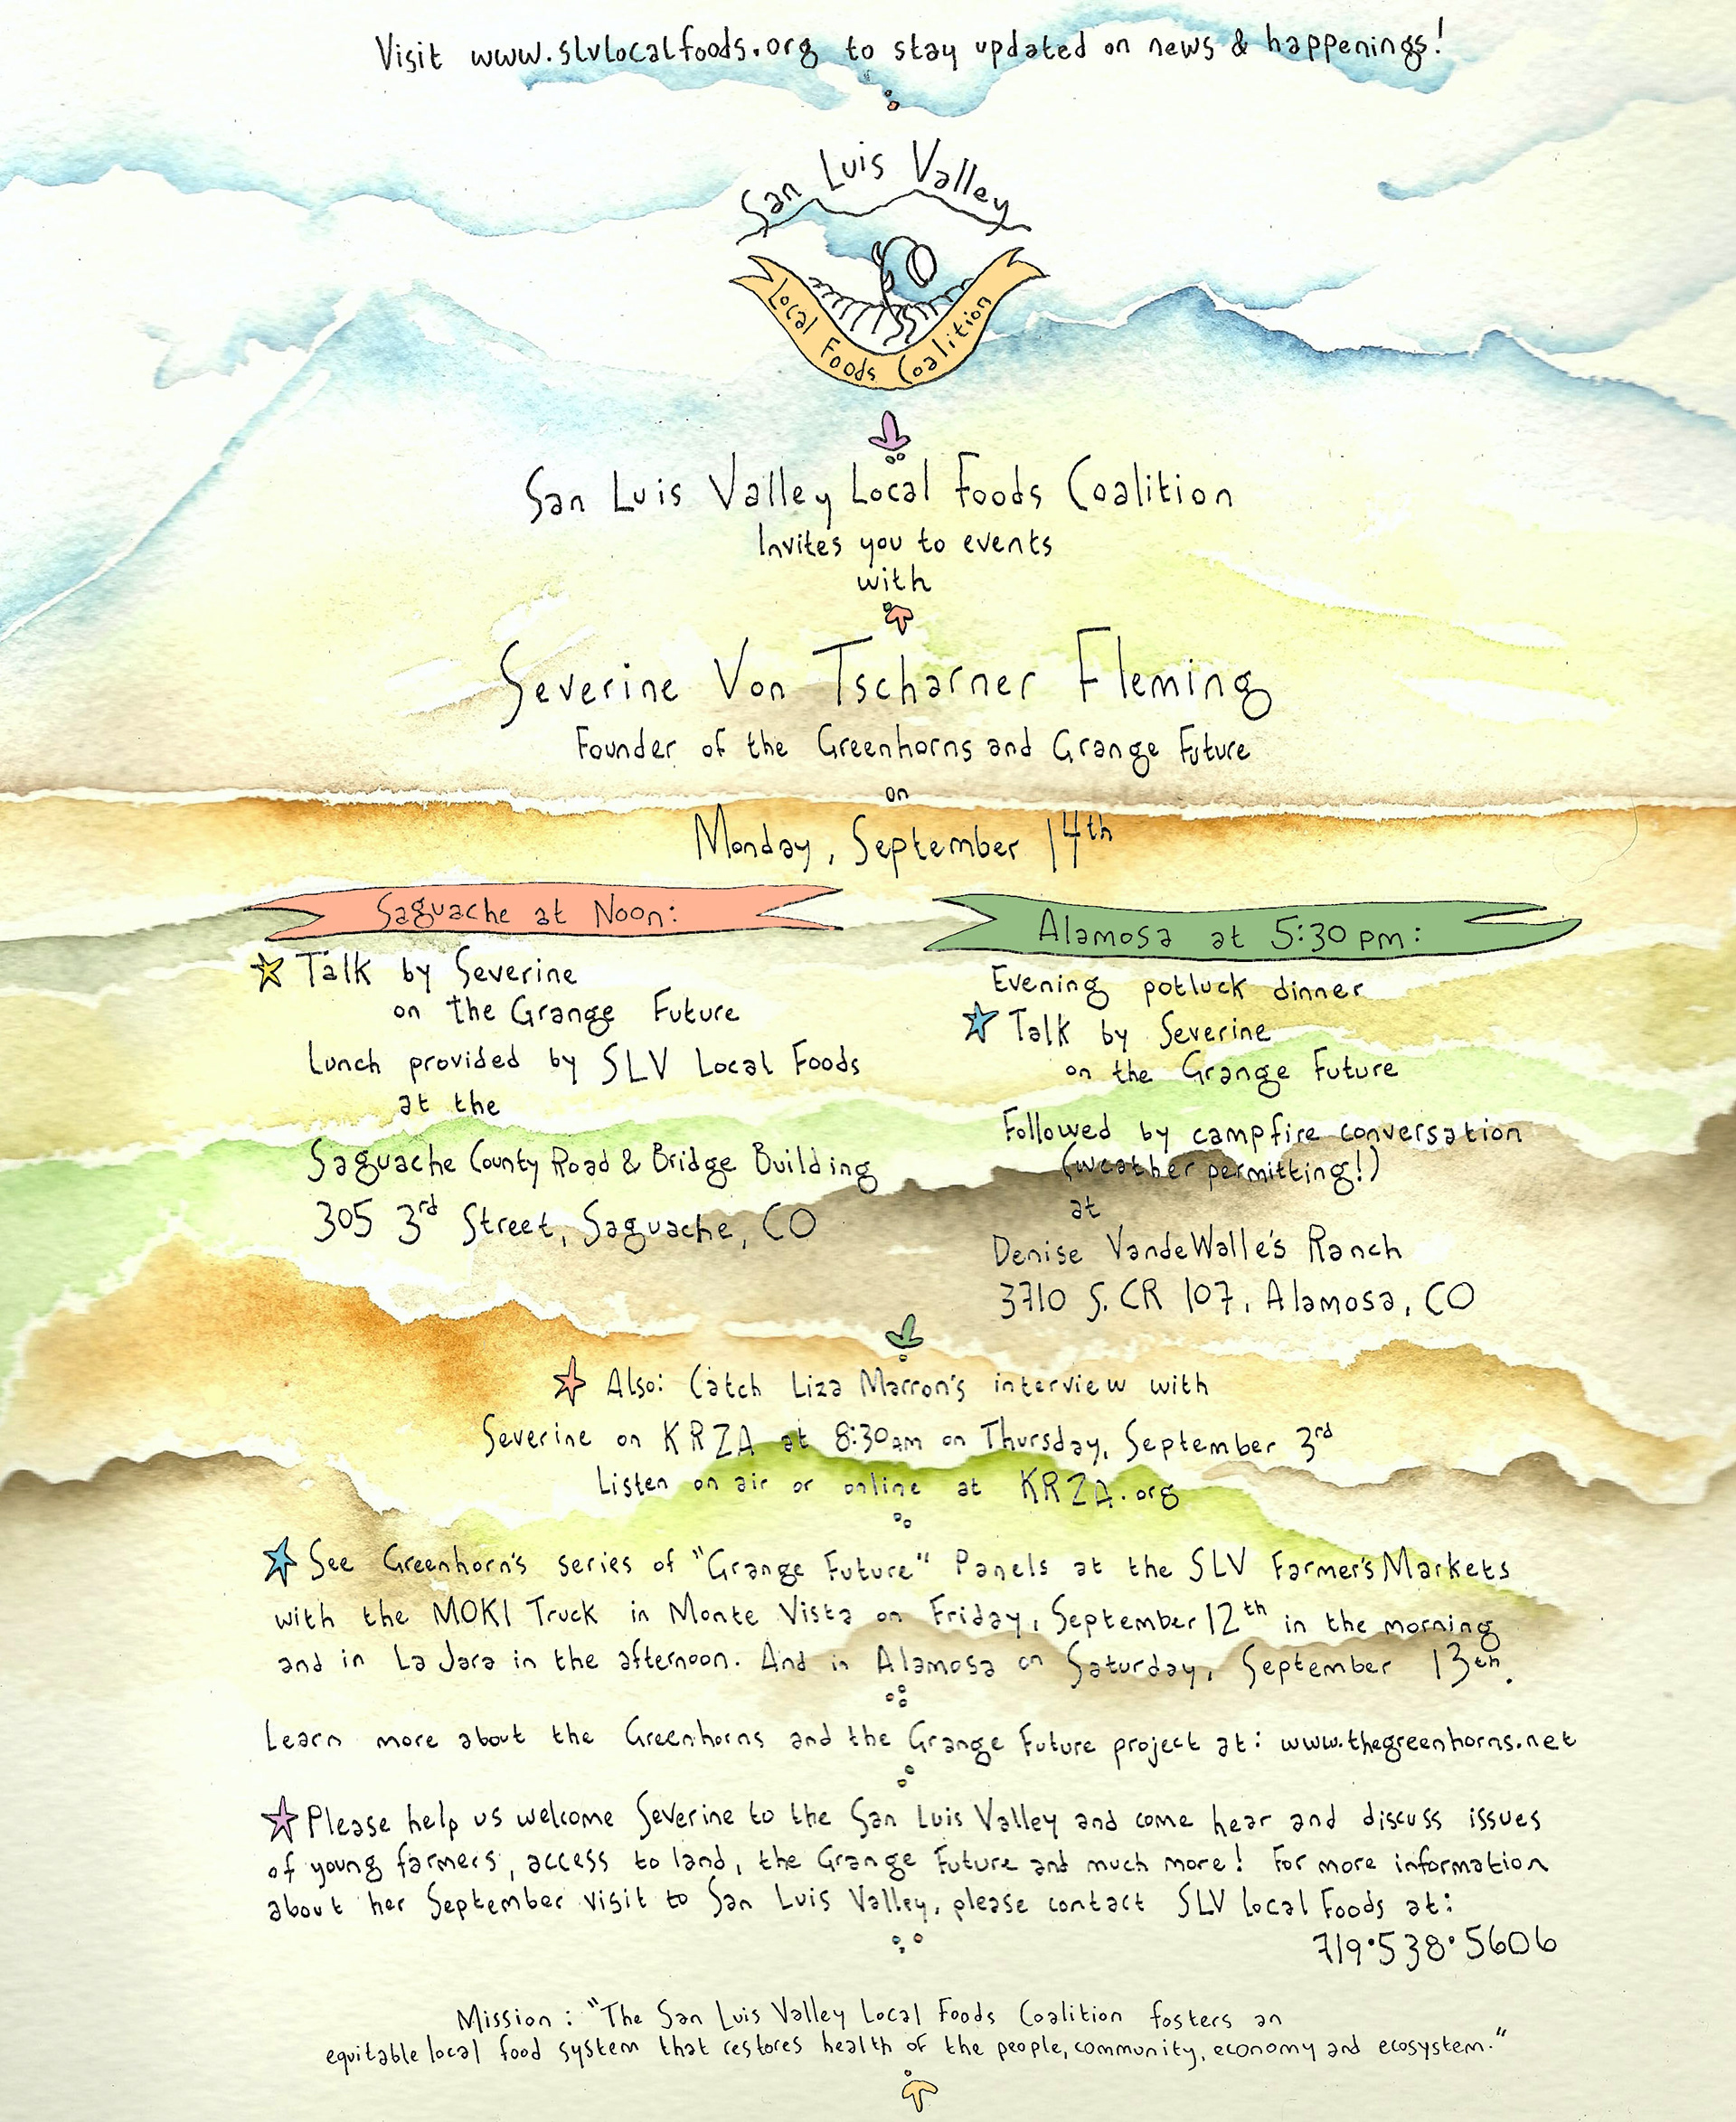 Visit www.slvlocalfoods.org to stay updated on news & happenings!
San Luis Valley
Local Foods Coalition
San Luis Valley Local Foods Coalition
Invites you to events
with
Severine Von Tscharner Fleming
Founder of the Greenhorns and Grange Future
on
Monday, September 14th
Saguache at Noon:
Talk by Severine
on the Grange Future
Lunch provided by SLV Local Foods
at the
Saguache County Road & Bridge Building
305 3rd Street, Saguache, CO
Alamosa at 5:30 pm:
Evening potluck dinner
Talk by Severine
on the Grange Future
Followed by campfire conversation
(weather permitting!)
at
Denise VandeWalle's Ranch
3710 S. CR 107, Alamosa, CO
Also: Catch Liza Marron's interview with
Severine on KRZA at 8:30am on Thursday, September 3rd
Listen on air or online at KRZA.org
See Greenhorn's series of "Grange Future" Panels at the SLV Farmer's Markets
with the MOKI Truck in Monte Vista on Friday, September 12th in the morning
and in La Jara in the afternoon. And in Alamosa on Saturday, September 13th.
Learn more about the Greenhorns and the Grange Future project at: www.thegreenhorns.net
Please help us welcome Severine to the San Luis Valley and come hear and discuss issues
of young farmers, access to land, the Grange Future and much more! For more information
about her September visit to San Luis Valley, please contact SLV Local Foods at:
719·538·5606
Mission: "The San Luis Valley Local Foods Coalition fosters an
equitable local food system that restores health of the people, community, economy and ecosystem."